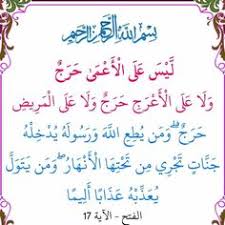 بِسْمِ اللَّهِ الرَّحْمَٰنِ الرَّحِيمِ
لَّيْسَ عَلَى الْأَعْمَىٰ حَرَجٌ
وَلَا عَلَى الْأَعْرَجِ حَرَجٌ وَلَا عَلَى الْمَرِيضِ
حَرَجٌ ۗ وَمَن يُطِعِ اللَّهَ وَرَسُولَهُ يُدْخِلْهُ
جَنَّاتٍ تَجْرِي مِن تَحْتِهَا الْأَنْهَارُ ۖ وَمَن يَتَوَلَّ
يُعَذِّبْهُ عَذَابًا أَلِيمًا
الفتح - الآية 17